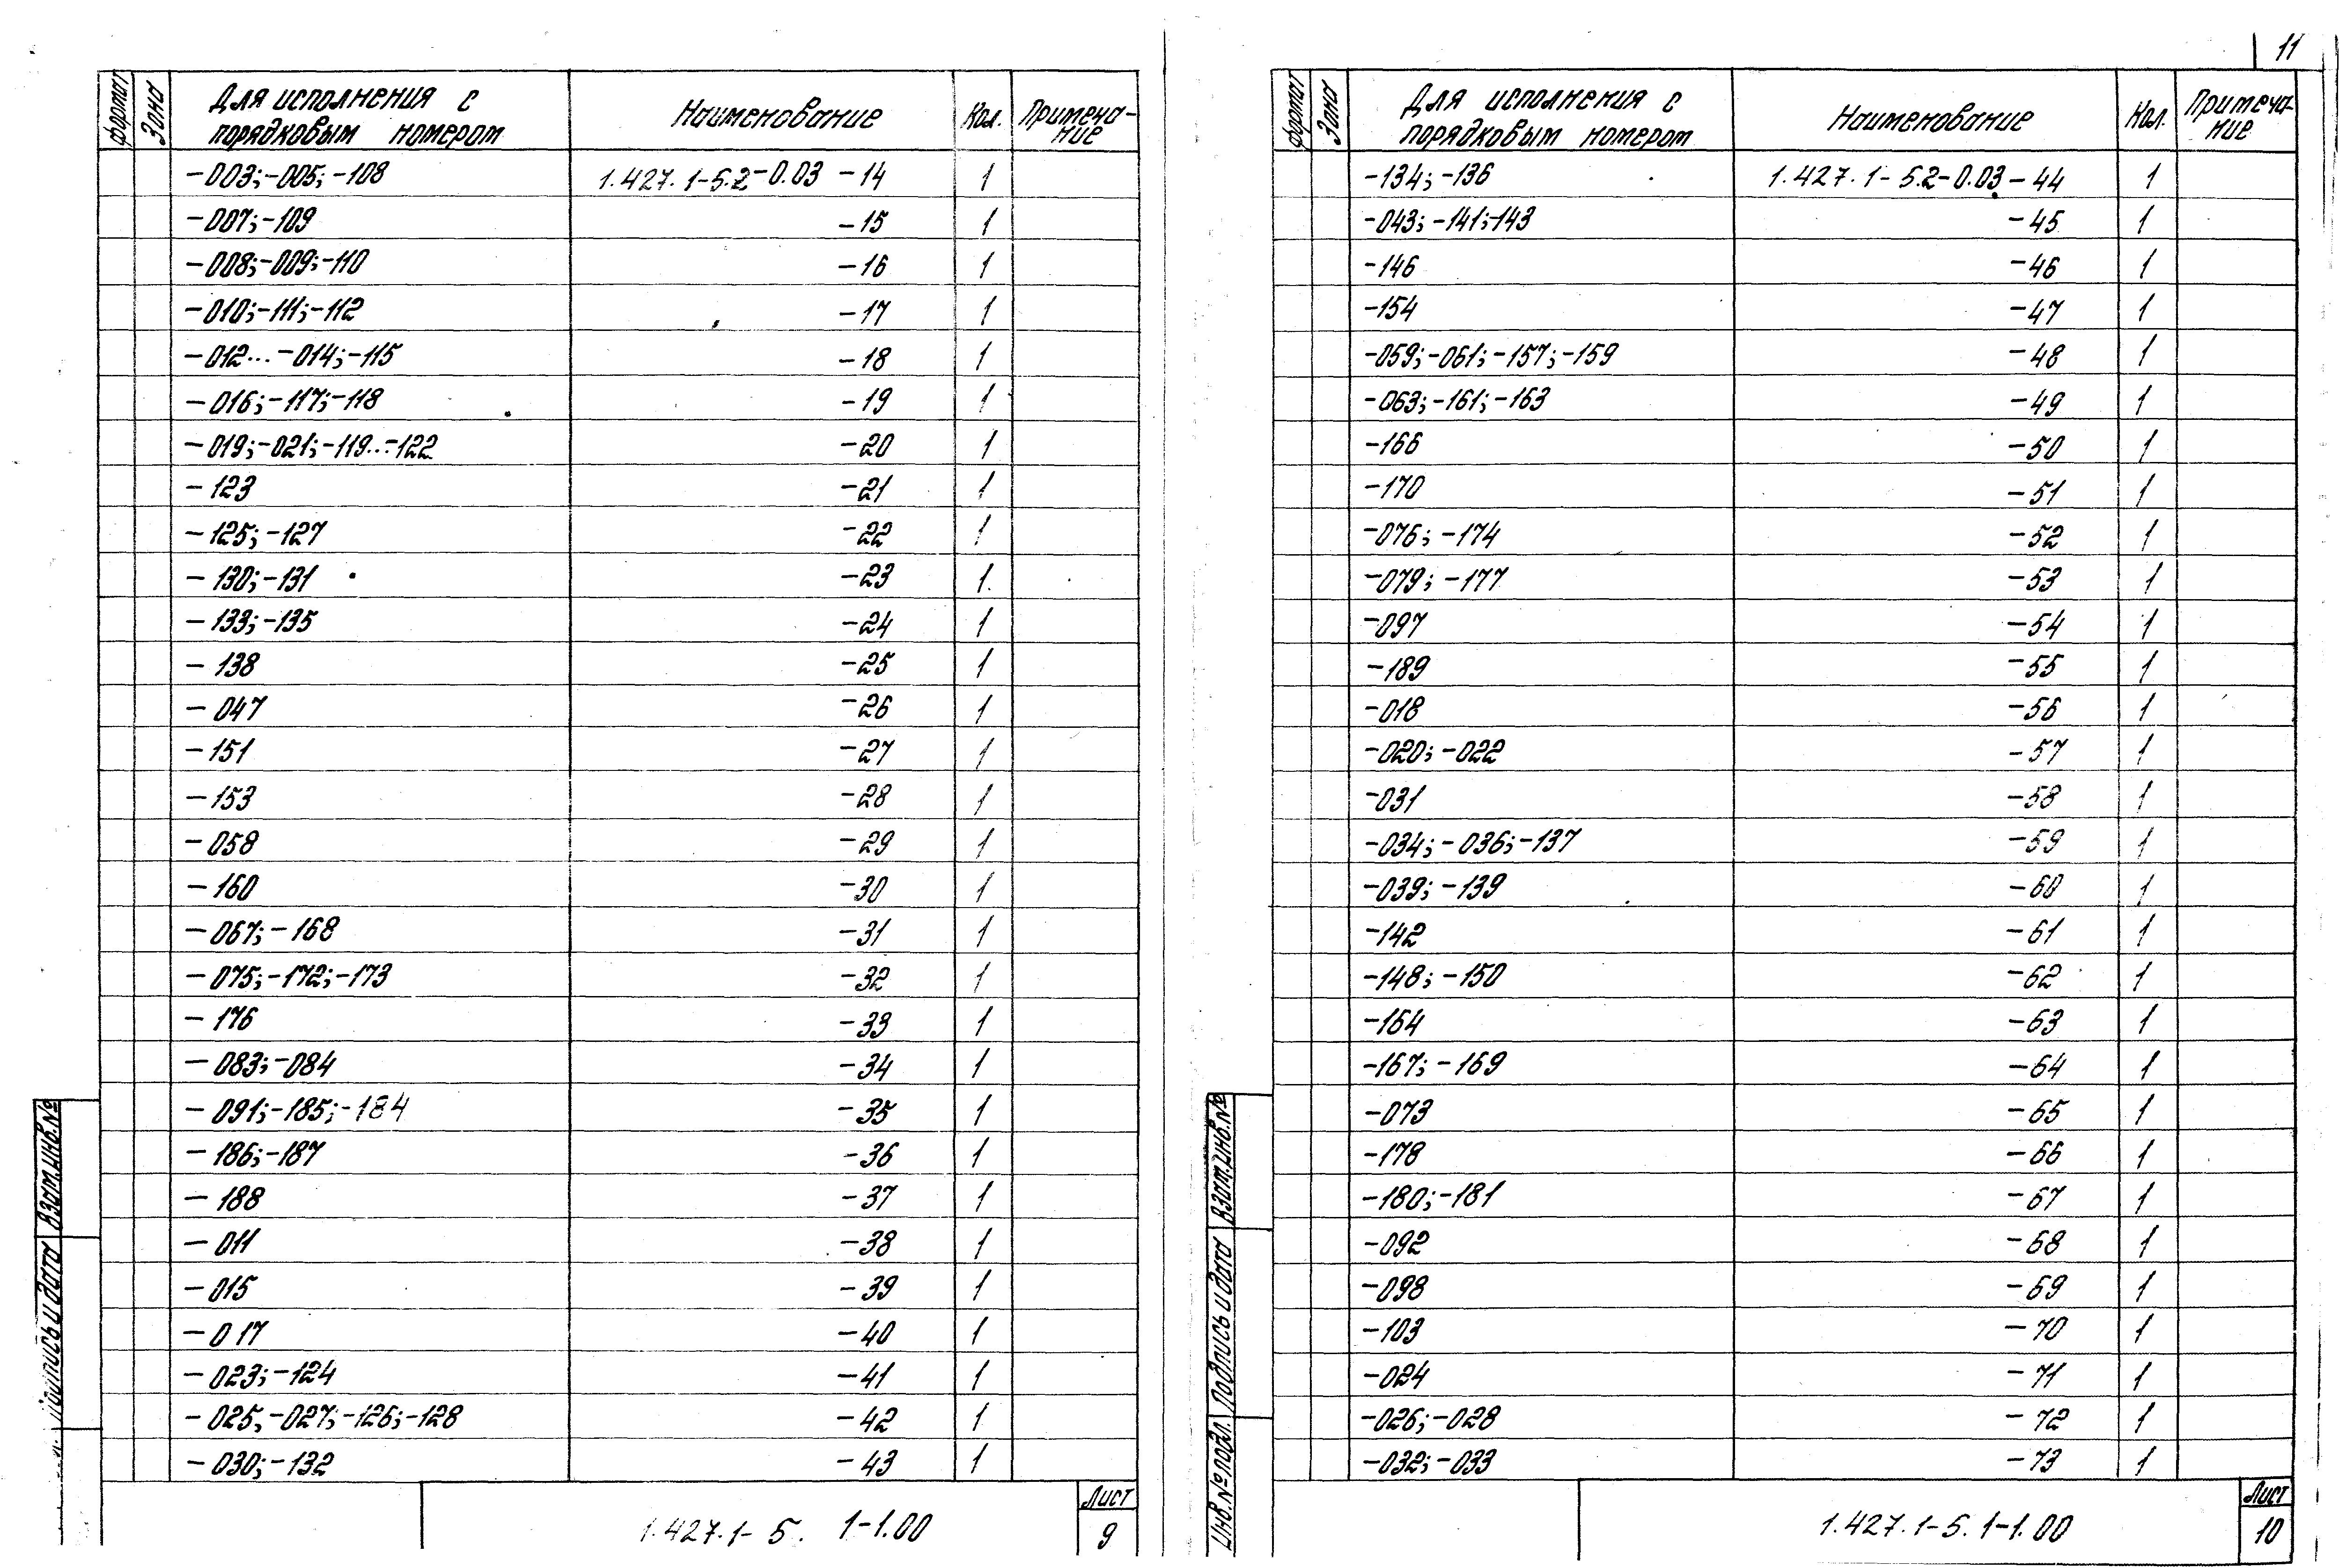 11
формат Зона Для исполнения с порядковым номером Наименование Кол. Примеча-ние
-003;-005;-108 1.427.1-5.2-0.03 -14 1
-007;-109 -15 1
-008;-009;-110 -16 1
-010;-111;-112 -17 1
-012...-014;-115 -18 1
-016;-117;-118 -19 1
-019;-021;-119...-122 -20 1
-123 -21 1
-125;-127 -22 1
-130;-131 -23 1
-133;-135 -24 1
-138 -25 1
-047 -26 1
-151 -27 1
-153 -28 1
-058 -29 1
-160 -30 1
-067;-168 -31 1
-075;-172;-173 -32 1
-176 -33 1
-083;-084 -34 1
-091;-185;-184 -35 1
-186;-187 -36 1
-188 -37 1
-011 -38 1
-015 -39 1
-017 -40 1
-023;-124 -41 1
-025;-027;-126;-128 -42 1
-030;-132 -43 1
Взам.инв.№
Подпись и дата
1.427.1-5. 1-1.00
Лист
9
формат Зона Для исполнения с порядковым номером Наименование Кол. Примеча-ние
-134;-136 1.427.1-5.2-0.03-44 1
-043;-141;-143 -45 1
-146 -46 1
-154 -47 1
-059;-061;-157;-159 -48 1
-063;-161;-163 -49 1
-166 -50 1
-170 -51 1
-076;-174 -52 1
-079;-177 -53 1
-097 -54 1
-189 -55 1
-018 -56 1
-020;-022 -57 1
-031 -58 1
-034;-036;-137 -59 1
-039;-139 -60 1
-142 -61 1
-148;-150 -62 1
-164 -63 1
-167;-169 -64 1
-073 -65 1
-178 -66 1
-180;-181 -67 1
-092 -68 1
-098 -69 1
-103 -70 1
-024 -71 1
-026;-028 -72 1
-032;-033 -73 1
Взам.инв.№
Подпись и дата
Инв.№ подл.
1.427.1-5.1-1.00
Лист
10